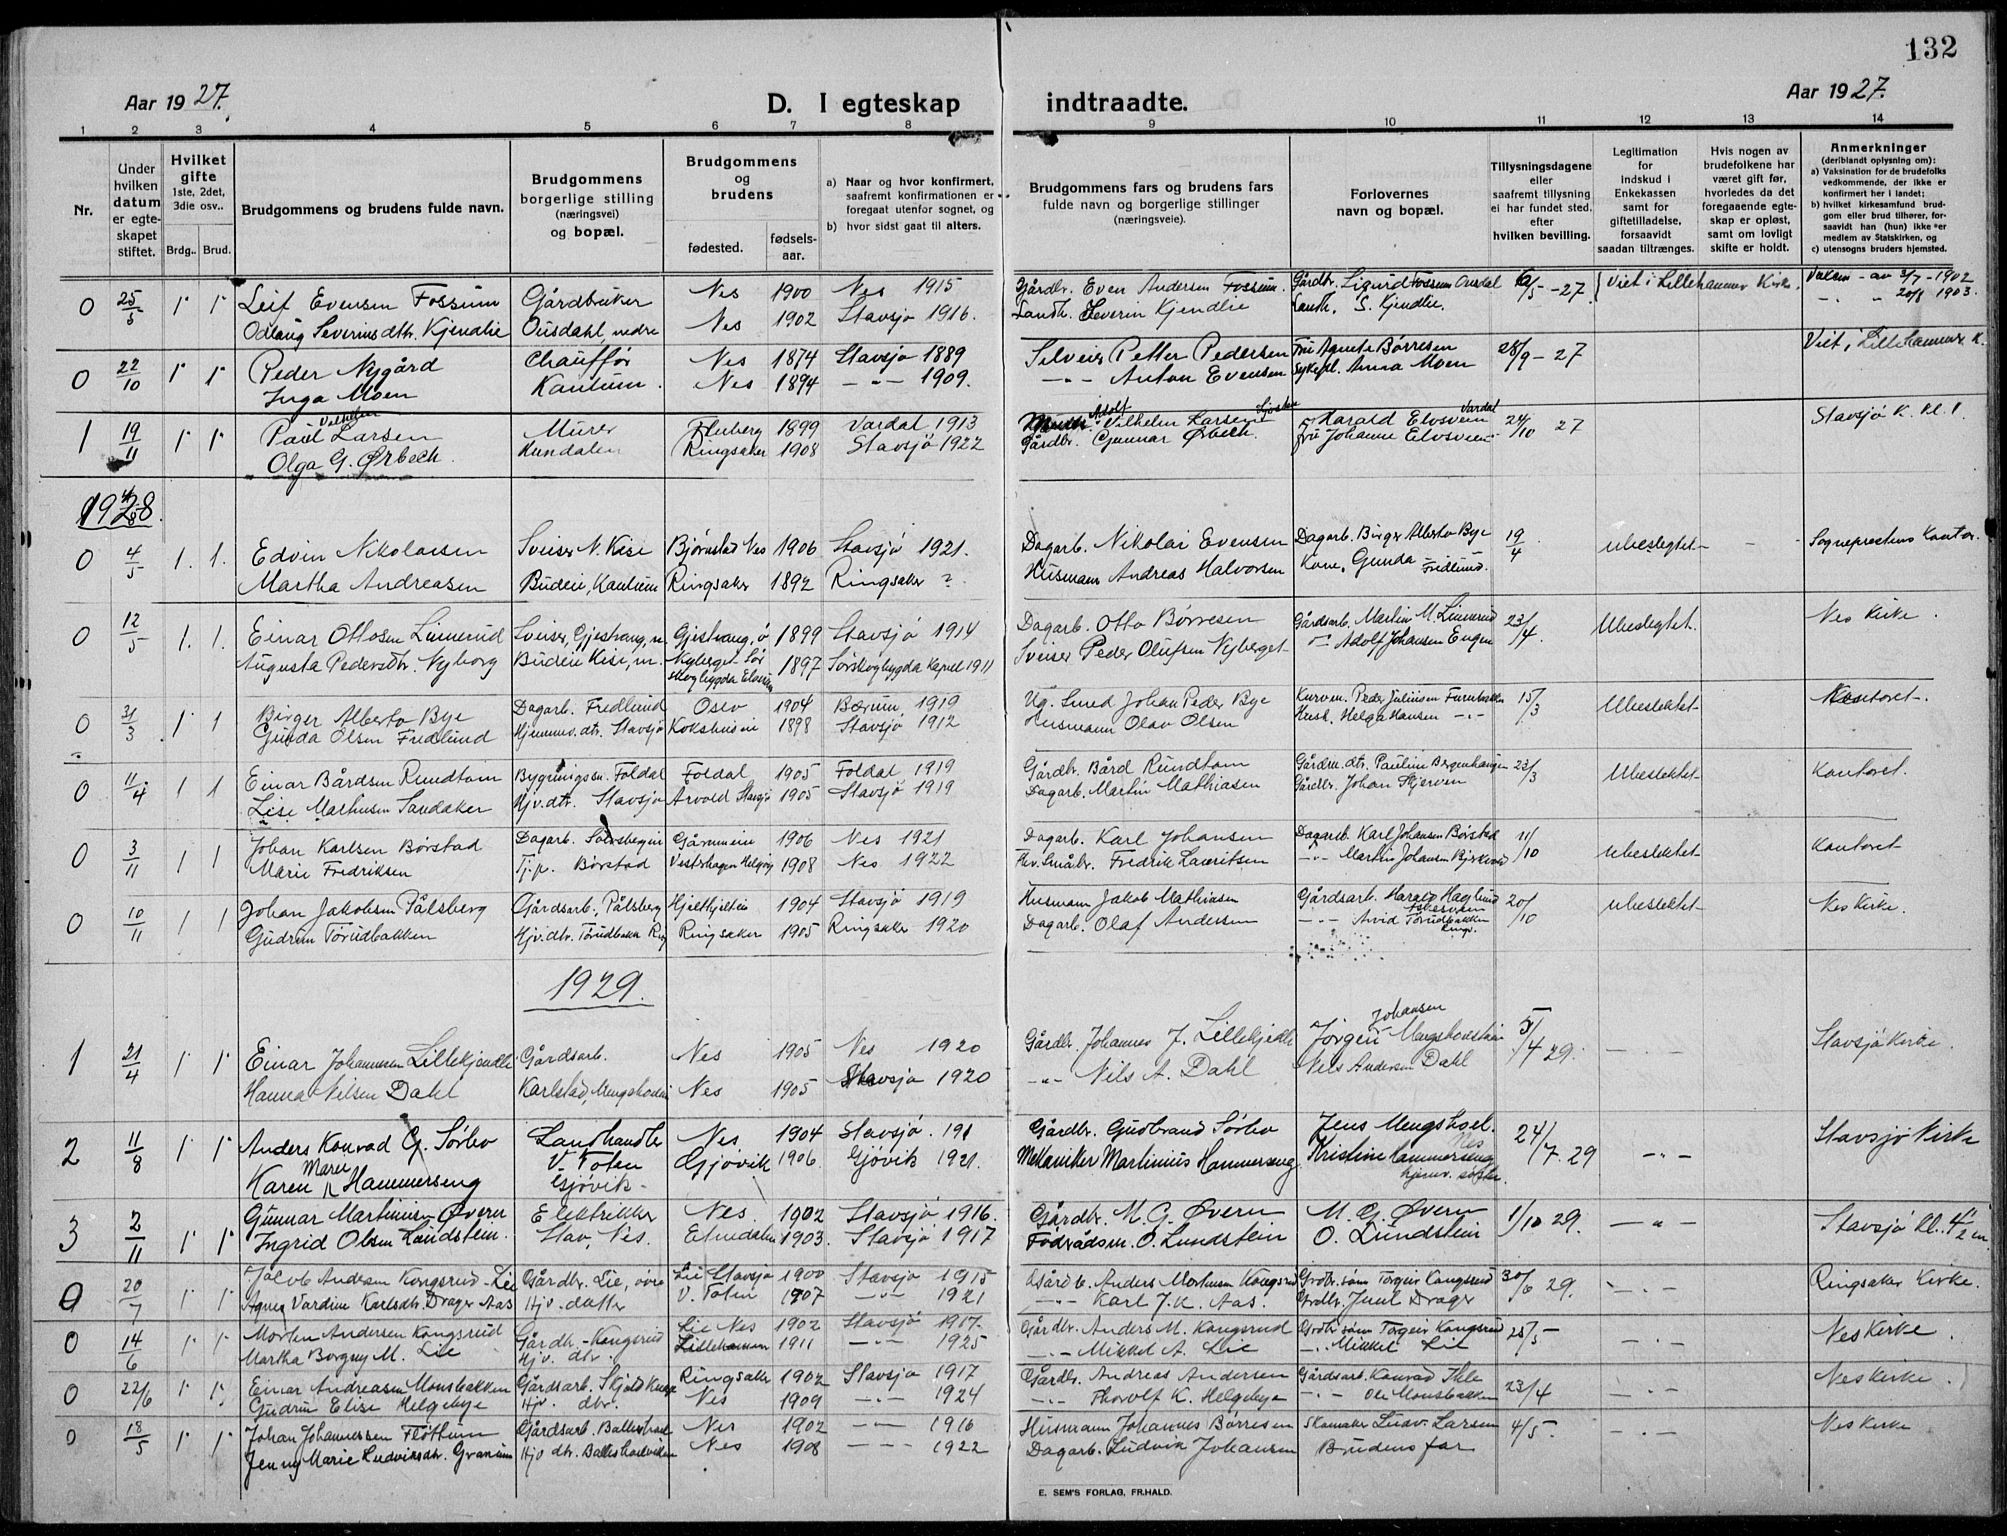 132
Aar 1927.
D. I egteskap indtraadte.
Aar 1927.
1 2 3 4 5 6 7 8 9 10 11 12 13 14
Nr.
Under hvilken datum er egteskapet stiftet.
Hvilket gifte 1ste, 2det, 3die osv..
Brdg.. Brud.
Brudgommens og brudens fulde navn.
Brudgommens borgerlige stilling (næringsvei) og bopæl.
Brudgommens og brudens
fødested. fødselsaar.
a) Naar og hvor konfirmert, saafremt konfirmationen er foregaat utenfor sognet, og
b) hvor sidst gaat til alters.
Brudgommens fars og brudens fars fulde navn og borgerlige stillinger (næringsveie).
Forlovernes navn og bopæl.
Tillysningsdagene eller saafremt tillysning ei har fundet sted, efter hvilken bevilling.
Legitimation for indskud i Enkekassen samt for giftetilladelse, forsaavidt saadan tiltrænges.
Hvis nogen av brudefolkene har været gift før, hvorledes da det foregaaende egteskap er opløst, samt om lovligt skifte er holdt.
Anmerkninger (deriblandt oplysning om):
a) Vaksination for de brudefolks vedkommende, der ikke er konfirmert her i landet;
b) hvilket kirkesamfund brudgom eller brud tilhører, forsaavidt han (hun) ikke er medlem av Statskirken, og
c) utensogns bruders hjemsted.
0 25/5 1 1 Leif Evensen Fossum Gårdbruker Nes 1900 Nes 1915 Gårdbr. Even Andersen Fossum. Gårdbr. Sigurd Fossum 6/5 - 27 Viet i Lillehammer Kirke. Vaksin - av 3/7 - 1902
Odlaug Severinsdtr. Kjendlie Ousdahl nedre Nes 1902 Stavsjø 1916. Landh. Severin Kjendlie Landh. S. Kjendlie. 20/8 1903.
0 22/10 1 1 Peder Nygård Chauffør Nes 1874 Stavsjø 1889 Petter Pedersen Fru Agnete Børresen 28/9 - 27 Viet i Lillehammer K.
Inga Moen Kaulum. Nes 1894 -"- 1909. -"- Anton Evensen Sykepl. Anna Moen
1 19/11 1 1 Paul Vilhelm Larsen Murer Fluberg 1899 Vardal 1913 Adolf Vilhelm Larsen Harald Elvsveen Vardal 24/10 27 Stavsjø K. kl. 1.
Olga G. Ørbech. Kundalen Ringsaker 1908 Stavsjø 1922 Gårdbr. Gunnar Ørbech. Fru Johanne Elvsveen
1928.
0 4/5 1. 1. Edvin Nikolaisen Sveiser N. Kise Bjørnstad Nes 1906 Stavsjø 1921. Dagarb. Nikolai Evensen Dagarb. Birger Alberto Bye 19/4 Ubeslegtet - Sogneprestens Kontor.
Martha Andreasen Budeie, Kaulum Ringsaker 1892 Ringsaker ? Husmann Andreas Halvorsen Kone, Gunda Fridlund.
0 12/5 1. 1. Einar Ottosen Linnerud Sveiser, Gjestvang, n. Gjestvang, ø 1899 Stavsjø 1914 Dagarb. Otto Børresen Gårdsarb. Martin M. Linnerud 23/4. Ubeslegtet. Nes Kirke.
Augusta Pedersdtr. Nyborg Budeie Kise, n. Nyberget Sør Skogbygda Elverum 1897 Sørskogbygda Kapel 1911 Sveiser Peder Olufsen Nyberget -"- Adolf Johansen Engen
0 31/3 1 1 Birger Alberto Bye Dagarb. Fredlund Oslo 1904 Bærum 1919 Ug. Smed Johan Peder Bye Kurvm. Peder Juliussen Furubakken 15/3 Ubeslektet - Kontoret.
Gunda Olsen Fredlund Hjemmev. dtr. Stavsjø Kokshuseie 1898 Stavsjø 1912 Husmann Olav Olsen Hush. Helga Hansen -"-
0 11/4 1 1 Einar Bårdsen Rundtom Bygningssn. Foldal Foldal 1905 Foldal 1919 Gårdbr. Bård Rundtom Gårdm. dtr. Pauline Bergenhaugen 23/3 Ubeslektet - Kontoret.
Lise Marthinsen Sandaker Hjv. dtr. Stavsjø Arvold Stavsjø 1905 Stavsjø 1919 Dagarb. Martin Mathiasen Gårdbr. Johan Skjerven
0 3/11 1 1 Johan Karlsen Børstad Dagarb. 1906 Nes 1921 Dagarb. Karl Johansen Dagarb. Karl Johansen Børstad 11/10 Ubeslektet - Kontoret
Marie Fredriksen Tj.p. Børstad 1908 Nes 1922 Småbr. Fredrik Lauritsen -"- Martin Johansen
0 10/11 1 1 Johan Jakobsen Pålsberg Gårdsarb., Pålsberg 1904 Stavsjø 1919 Husmann Jakob Mathiasen Gårdsarb. Harald Haglund 20/10 Ubeslektet - Nes Kirke.
Gudrun Torudbakken Hjv. dtr. Torudbakk. Ring Ringsaker 1905 Ringsaker 1920 Dagarb. Olaf Andersen -"- Arvid Torudbakken Rings.
1929.
1 21/4 1 1 Einar Johannesen Lillekjendlie Gårdsarb. Nes 1905 Nes 1920 Gårdbr. Johannes J. Lillekjendlie Jørgen Johansen 5/4 29. - - - Stavsjø Kirke.
Hanna Nelsen Dahl Karlstad, Nes 1905 Stavsjø 1920 -"- Nils A. Dahl Nels Andersen Dahl
2 11/8 1 1 Anders Konrad G. Sørbo Landhandler Nes 1904 Stavsjø. 191 Gårdbr. Gudbrand Sørbo Jens Mengshoel. Nes 24/7. 29 - " - Stavsjø Kirke
Karen Marie Hammerseng V. Toten Gjøvik - Gjøvik 1906 Gjøvik 1921. Mekaniker Martinius Hammerseng Kristine Hammerseng hjemv. søster.
3 2/11 1 1 Gunnar Martinisen Øvern Elektrikker Nes 1902 Stavsjø 1916. Gårdbr. M. G. Øvern M. G. Øvern 1/10 29. - " - Stavsjø kl. 4 1/2 em.
Ingrid Olsen Lundstein. Stav, Nes. Etnedalen 1903. Stavsjø 1917 Föderådsm. O. Lundstein O. Lundstein
0 20/7 1 1 Jacob Andersen Kongsrud - Lie Gårdbr. Lie, øvre Lie Stavsjø 1900 Stavsjø 1915 Gårdb. Anders Mortensen Kongsrud Grdbr. søn Torgeir Kongsrud 30/6 29. - . - Ringsaker Kirke.
Agnes Vardine Karlsdtr. Drager Aas Hjv. datter V. Toten 1907 -"- 1921 -"- Karl J. K. Aas. Grdbr. Juul Drager
0 14/6 1 1 Morten Andersen Kongsrud Gårdbr. - Kongsrud Lie Nes 1902 Stavsjø 1917. Gårdbr. Anders M. Kongsrud Grdbr. søn Torgeir Kongsrud 25/5 - - . - Nes Kirke.
Martha Borgny M. Lie Hjv. dtr. Lillehammer 1911 -"- 1925 -"- Mikkel A. Lie -"- Mikkel Lie
0 22/6 1 1. Einar Andreasen Monsbakken Gårdsarb. Ringsaker 1902 Stavsjø 1917 Gårdbr. Andreas Andersen Gårdsarb. Konrad Ihle 23/4 - . - Nes Kirke.
Gudrun Elise Helgebye Hjv. dtr. Nes 1909 -"- 1924 -"- Thorolf K. Helgebye -"- Ole Monsbakken
0 18/5 1 1 Johan Johannessen Fløttum Gårdsarb. Nes 1902 -"- 1916 Husmann Johannes Børresen Skomaker Ludv. Larsen 4/5 - - . - Nes Kirke
Jenny Marie Ludviksdtr. Granum Hjv dtr. Nes 1908 -"- 1922 Dagarb. Ludvik Johansen Brudens far
E. SEM'S FORLAG, FR.HALD.